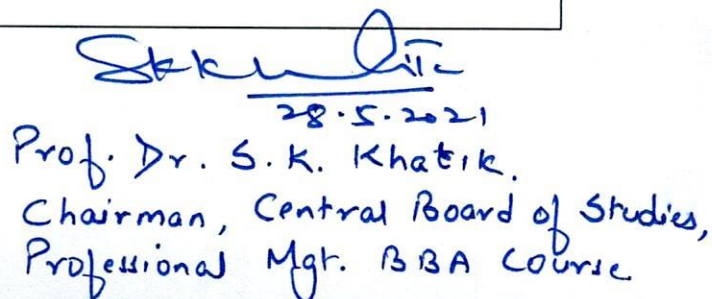 28.5.2021
Prof. Dr. S. K. Khatik.
Chairman, Central Board of Studies,
Professional Mgt. BBA Course